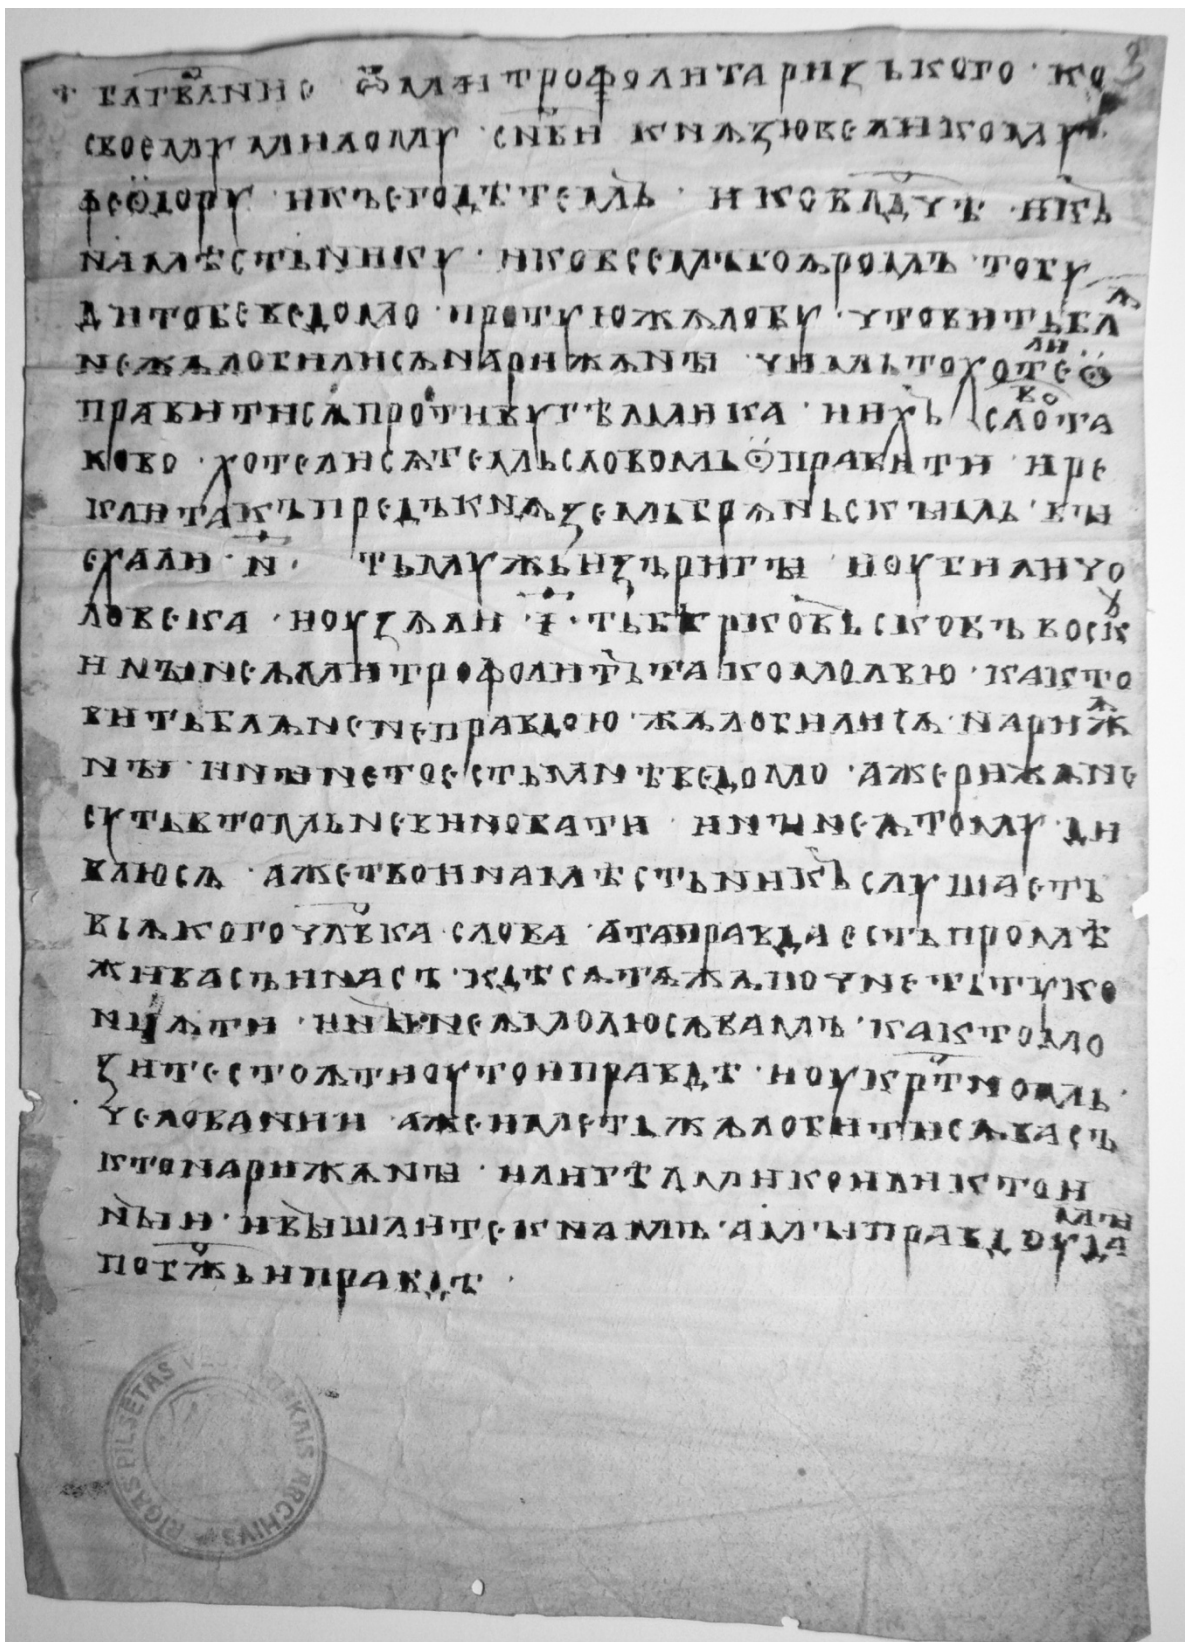 3
† бл҃гⷭ҇вление ѿ митрофолита ризького · ко
своемү милому · сн҃ви кнѧзю великому
феѡдорү · и къ его дѣтемъ · и ко влⷣчѣ · и къ
намѣстьнику · и ко всемъ боѧромъ то бү
ди тобе ведомо · про тү южѧлобү · что витьблѧ
не жѧлобилисѧ на рижѧнъı чимь то хотели ѡ
правитисѧ противу гѣлмика · и ихъ слово та
ково · хотели сѧ темь словомь ѡправити и ре
кли такъ предъ кнѧземь брѧньскъıмь · въı
ехали · н҃ · ть мужь изъ ригъı и оубили чо
ловека · и оузѧли · ı҃ · ть бѣрковьсковъ воскү
и нъıне ѧ митрофолитъ тако молвю · како то
витьблѧне неправдою · жѧлобилисѧ · на рижѧ
нъı · и нъıне то есть мнѣ ведомо · аже рижѧне
суть в томь не виновати и нъıне ѧ тому ди
влюсѧ · аже твои намѣстьникъ слушаеть
всѧкого члв҃ка слова · а та правда есть промѣ
жи васъ и насъ · кдѣ сѧ тѧжѧ почнеть ту ко
нцѧти · и нъıне ѧ молюсѧ вамъ · како то мо
зите стоѧти оу тои правдѣ · и оу крⷭ҇тномь ·
челованьи аже иметь жѧлобитисѧ васъ
кто на рижѧнъı · или гѣлмико или кто и
нъıи · и въı шлите к намъ · а мъı правду дамъı
по бж҃ьи правдѣ ·
RIGAS PILSETAS VESTURISKAIS ARCHIVS